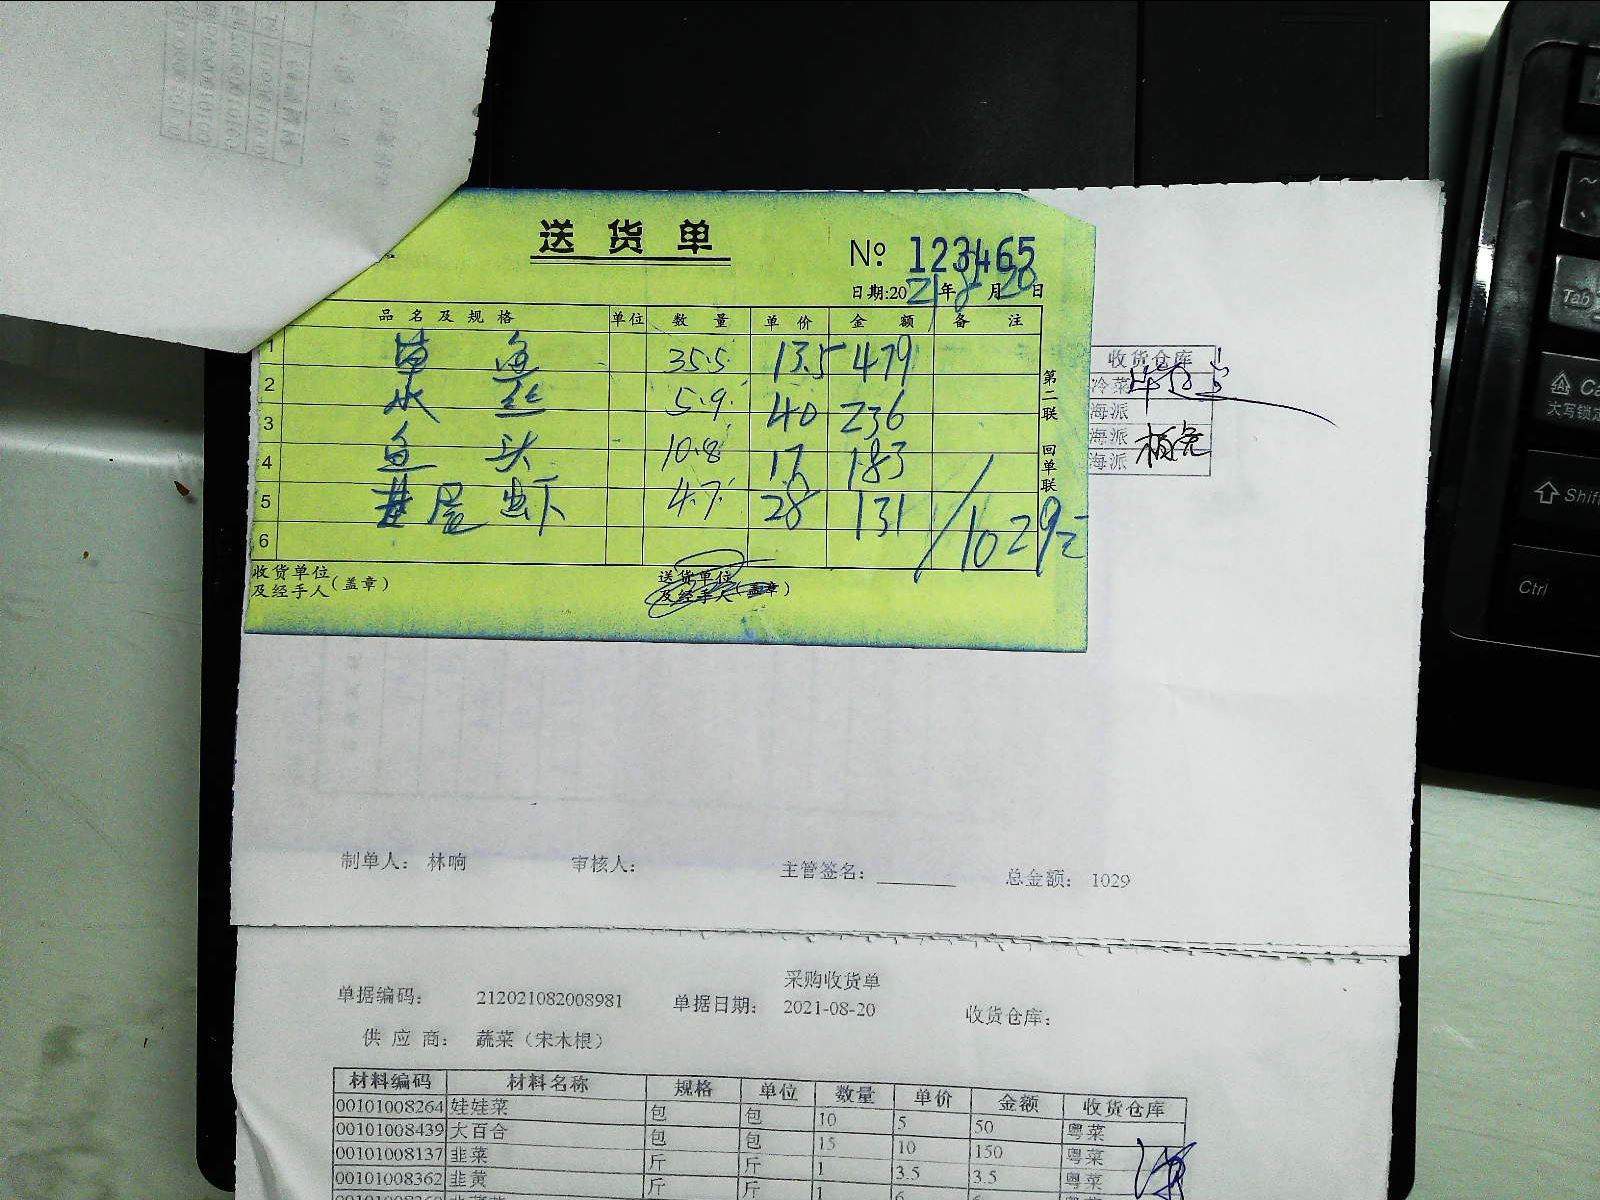 送货单
№ 123465
日期:2021年8月20日
品名及规格 单位 数量 单价 金额 备注
1 草鱼 35.5 13.5 479
2 水 5.9 40 236
3 鱼头 10.8 17 183
4 基尾虾 4.7 28 131
5
6
/1029元
第二联 回单联
收货单位
及经手人(盖章)
送货单位
及经手人(盖章)
收货仓库
冷菜
海派
海派
海派
制单人: 林响 审核人: 主管签名: 总金额: 1029
采购收货单
单据编码: 212021082008981 单据日期: 2021-08-20 收货仓库:
供应商: 蔬菜(宋木根)
材料编码 材料名称 规格 单位 数量 单价 金额 收货仓库
00101008264 娃娃菜 包 包 10 5 50 粤菜
00101008439 大百合 包 包 15 10 150 粤菜
00101008137 韭菜 斤 斤 1 3.5 3.5 粤菜
00101008362 韭黄 斤 斤 1 6
Tab
Ca
大写锁定
Shift
Ctrl